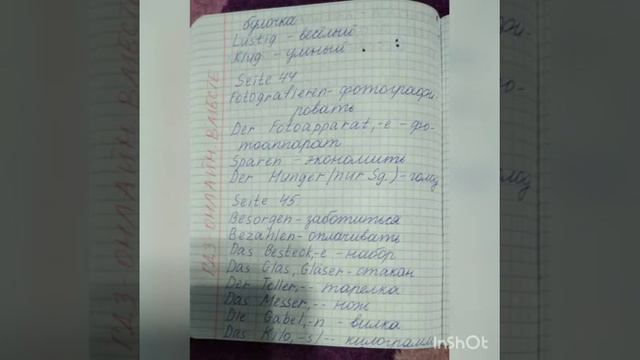 булочка
Lustig - весёлый
Klug - умный
Seite 44
Fotografieren - фотографи-
ровать
Der Fotoapparat, -e - фо-
тоаппарат
Sparen - экономить
Der Hunger (nur Sg.) - голод
Seite 45.
Besorgen - заботиться
Bezahlen - оплачивать
Das Besteck, -e - набор
Das Glas, Gläser - стакан
Der Teller, -- тарелка
Das Messer, -- нож
Die Gabel, -n - вилка
Das Kilo, -s/-- килограмм
ГДЗ ОНЛАЙН ВМЕСТЕ
InShOt